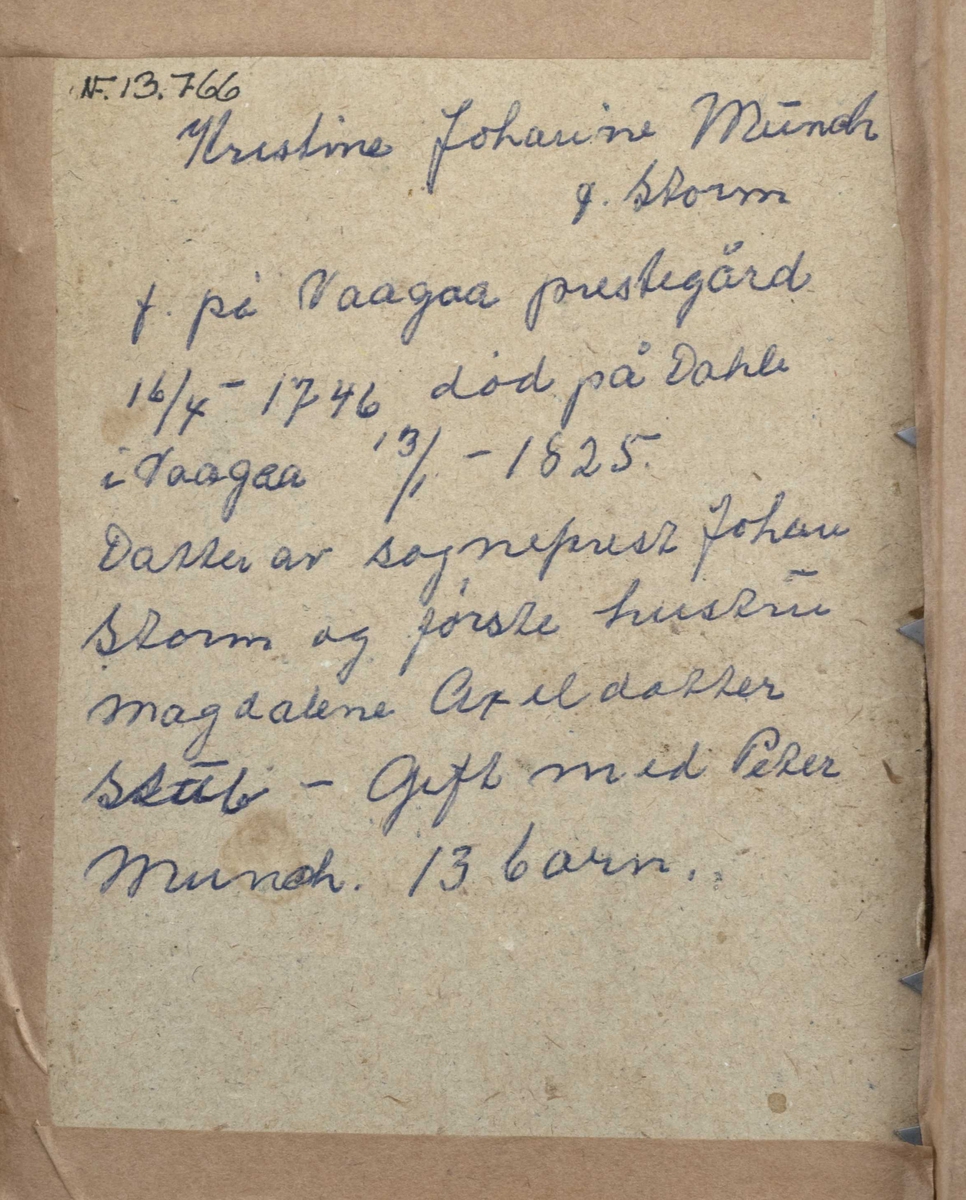 NF. 13.766
Kristine Johanne Münch
f. Storm
f. på Vaagaa prestegård
16/4 - 1746 død på Dahle
i Vaagaa 13/1 - 1825.
Datter av sogneprest Johan
Storm og første hustrū
Magdalene Axeldatter
Stūb - Gift med Peter
Munch. 13 barn.